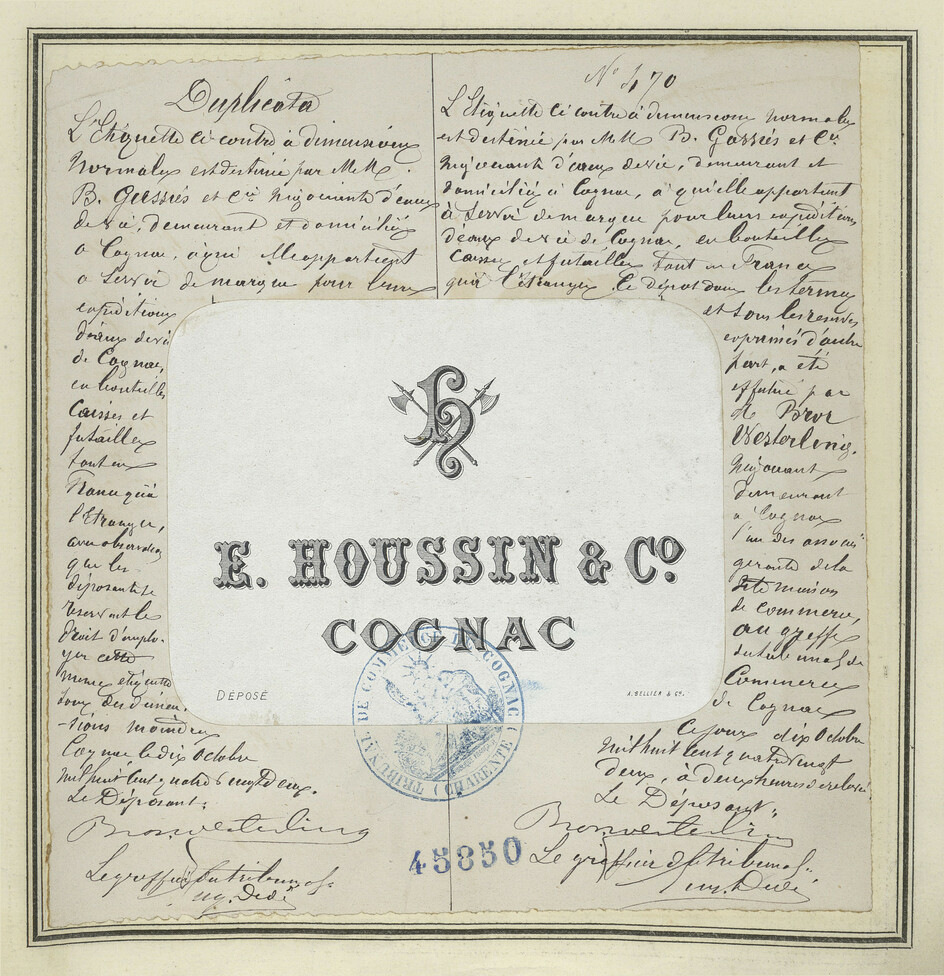 Duplicata
L'Etiquette ci contre à dimensions
normales est destinée par M.M.
B. Gassiés et Cie Négociants d'eaux
de vie, demeurant et domiciliés
a Cognac, à qui elle appartient
a servir de marque pour leurs
expéditions
d'eaux de vie
de Cognac,
en bouteilles
Caisses et
futailles
tant en
France qu'à
l'Etranger,
avec observation
que les
déposants se
reservent le
droit d'emplo-
yer cette
meme étiquette
sous des dimen-
-sions moindres
Cognac le dix Octobre
mil huit cent quatre vingt deux.
Le Déposant:
Bror Westerling
Le greffier du tribunal
No 470
L'Etiquette ci contre à dimensions normales
est destinée par M.M. B. Gassiés et Cie
Négociants d'eaux de vie, demeurant et
domiciliés à Cognac, à qu'elle appartient
à servir de marque pour leurs expéditions
d'eaux de vie de Cognac, en bouteilles
Caisses et futailles tant en France
qu'à l'étranger. Ce dépot dans les termes
et sous les reserves
exprimés d'autre
part, a été
effectué par
Mr Bror
Westerling,
Négociant
demeurant
à Cognac
l'un des associés
gerants de la
dite maison
de commerce,
au greffe
du tribunal de
Commerce
de Cognac
Ce jour dix Octobre
mil huit cent quatre vingt
deux, à deux heures de relevée
Le Déposant:
Bror Westerling
Le greffier du tribunal
H
E. HOUSSIN & CO.
COGNAC
DÉPOSÉ
A. BELLIER & Cie.
TRIBUNAL DE COMMERCE DE COGNAC
(CHARENTE)
45850